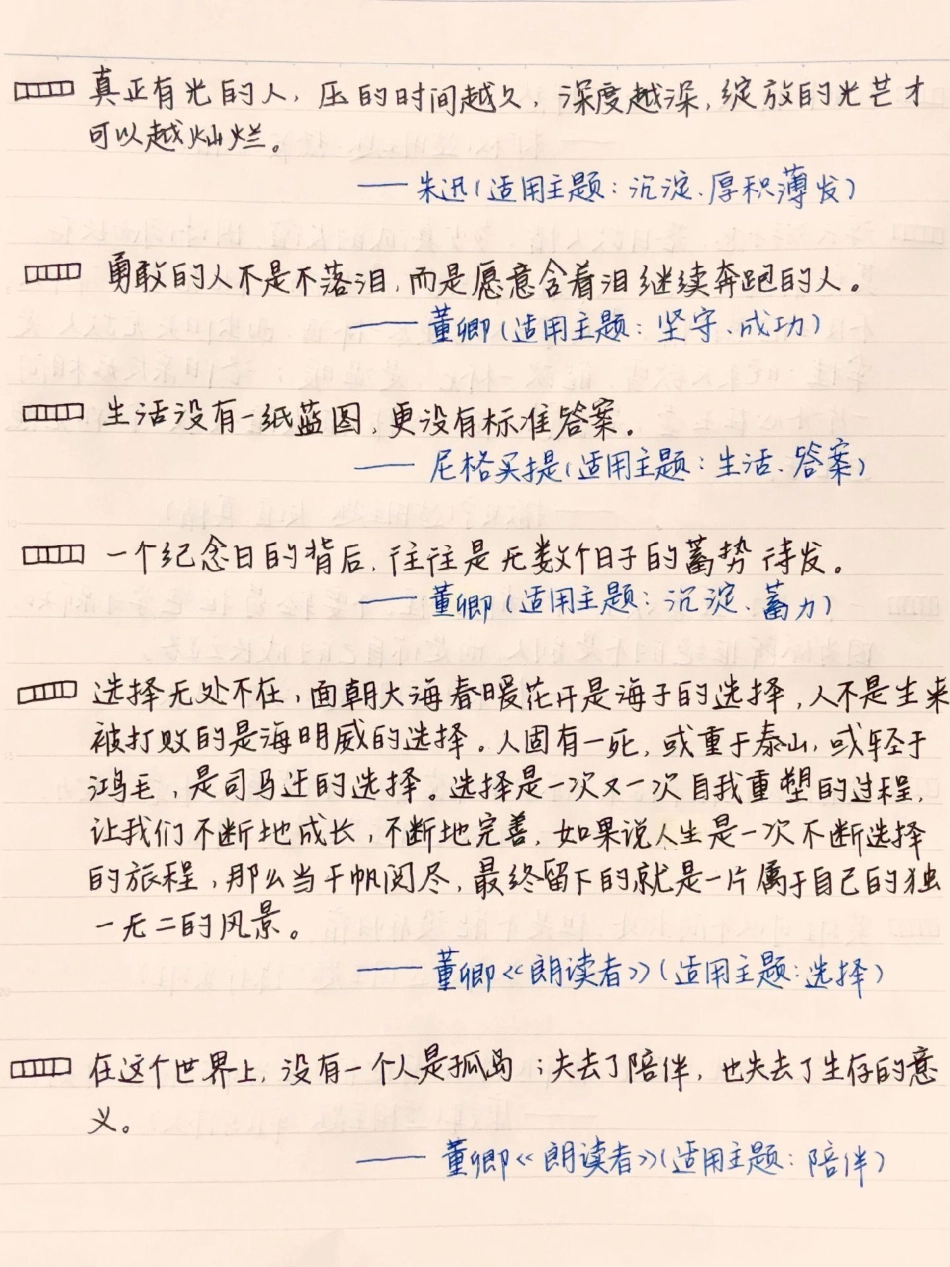 真正有光的人，压的时间越久，深度越深，绽放的光芒才
可以越灿烂。
——朱迅(适用主题：沉淀、厚积薄发)
勇敢的人不是不落泪，而是愿意含着泪继续奔跑的人。
——董卿(适用主题：坚守、成功)
生活没有一纸蓝图，更没有标准答案。
——尼格买提(适用主题：生活、答案)
一个纪念日的背后，往往是无数个日子的蓄势待发。
——董卿(适用主题：沉淀、蓄力)
选择无处不在，面朝大海春暖花开是海子的选择，人不是生来
被打败的是海明威的选择。人固有一死，或重于泰山，或轻于
鸿毛，是司马迁的选择。选择是一次又一次自我重塑的过程，
让我们不断地成长，不断地完善，如果说人生是一次不断选择
的旅程，那么当千帆阅尽，最终留下的就是一片属于自己的独
一无二的风景。
——董卿《朗读者》(适用主题：选择)
在这个世界上，没有一个人是孤岛；失去了陪伴，也失去了生存的意
义。
——董卿《朗读者》(适用主题：陪伴)